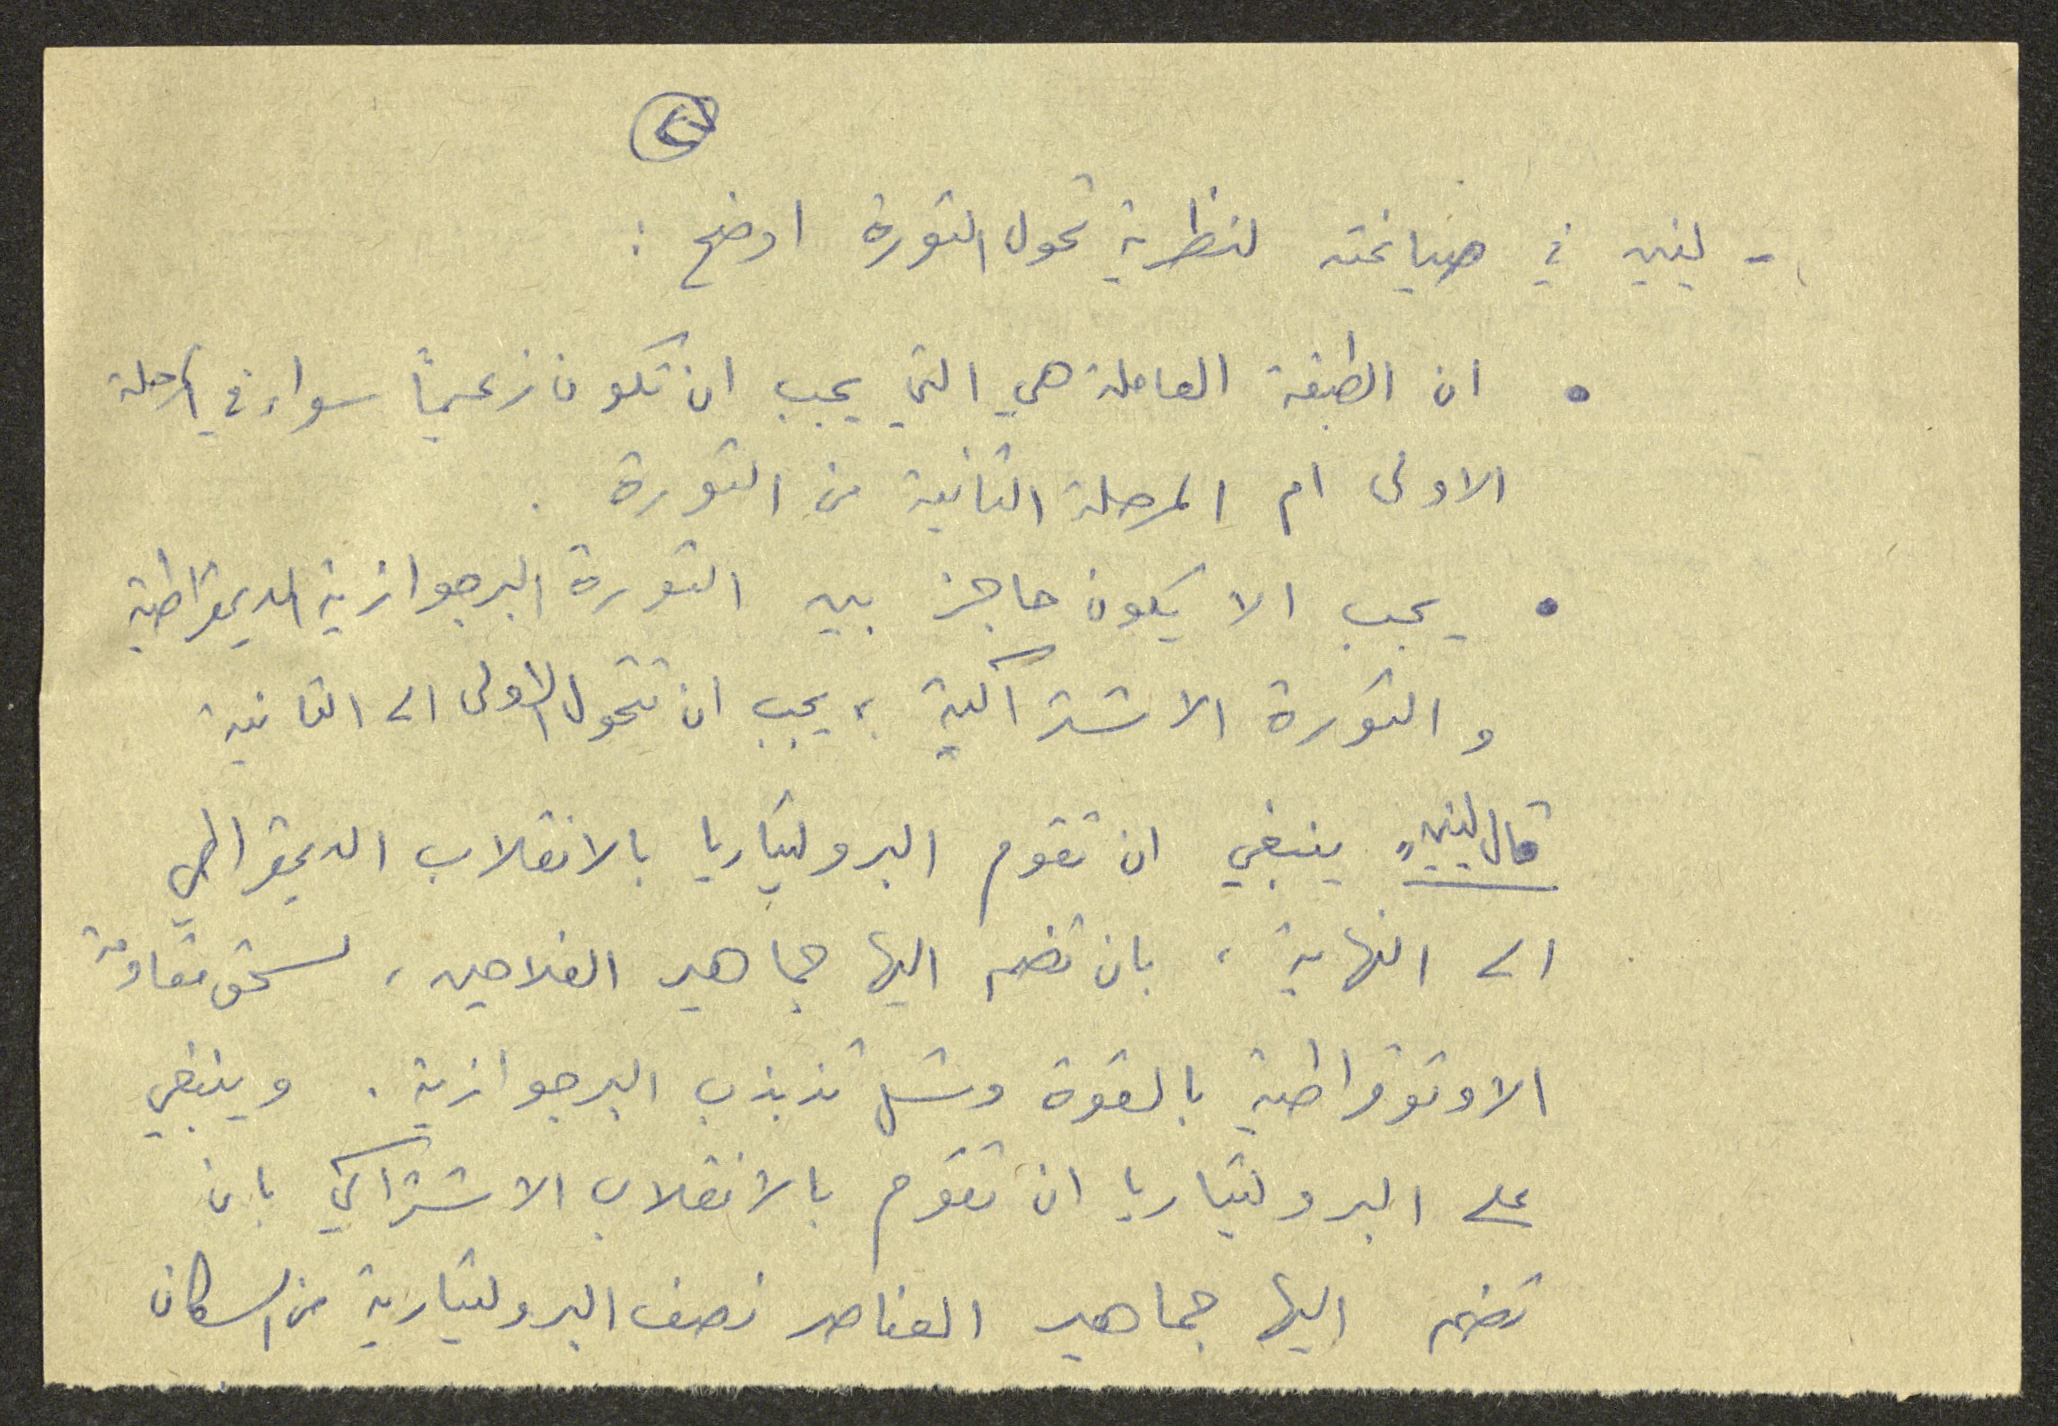 - لينين في صياغته لنظرية تحول الثورة اوضح :
• ان الطبقة العاملة هي التي يجب ان تكون زعيماً سواء في المرحلة
الاولى ام المرحلة الثانية من الثورة .
• يجب الا يكون حاجز بين الثورة البرجوازية الديمقراطية
و الثورة الاشتراكية ، يجب ان تتحول الاولى الى الثانية
قال لينين " ينبغي ان تقوم البروليتاريا بالانقلاب الديمقراطي
الى النهاية ، بان تضم اليها جماهير الفلاحين ، لسحق مقاومة
الاوتوقراطية بالقوة وشل تذبذب البرجوازية . وينبغي
على البروليتاريا ان تقوم بالانقلاب الاشتراكي بان
تضم اليها جماهير العناصر نصف البروليتارية من السكان